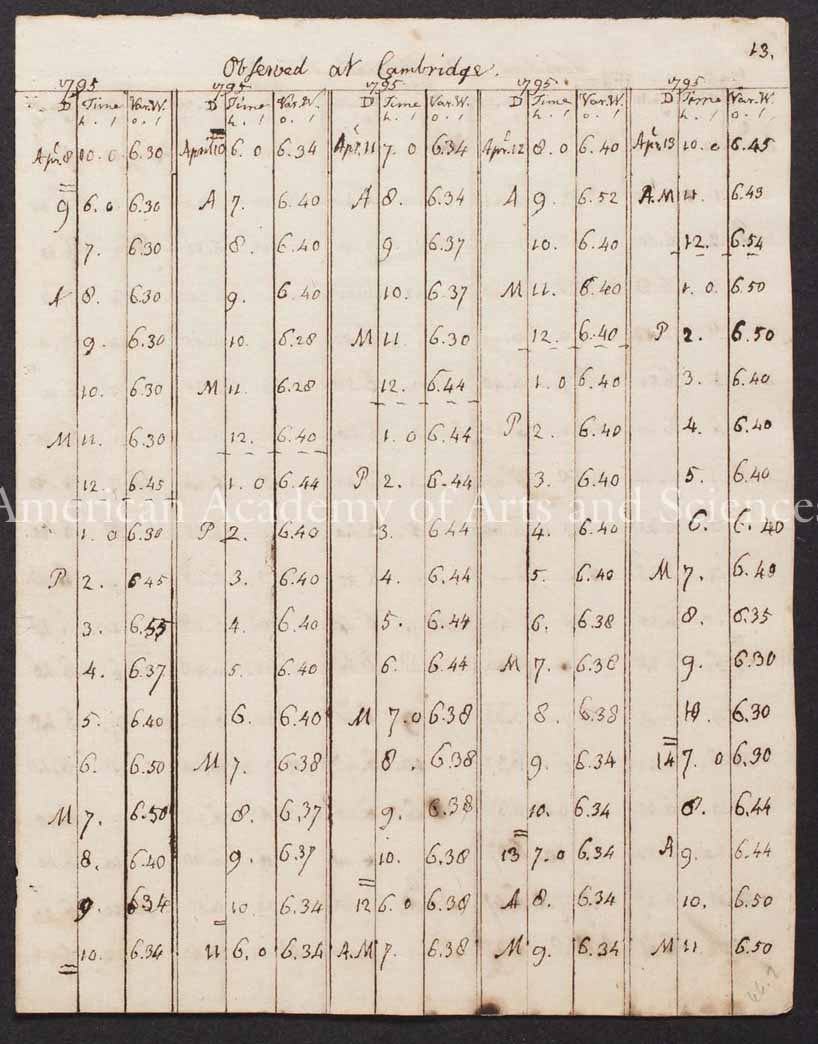 13.
Observed at Cambridge.
1795 1795 1795 1795 1795
D Time Var.W. D Time Var.W. D Time Var.W. D Time Var.W. D Time Var.W.
h. ' o. ' h. ' o. ' h. ' o. ' h. ' o. ' h. ' o. '
Apr. 8 10. 0 6.30 April 10 6. 0 6.34 Apr. 11 7. 0 6.34 Apr. 12 8. 0 6.40 Apr. 13 10. 0 6.45
9 6. 0 6.30 A 7. 6.40 A 8. 6.34 A 9. 6.52 A.M 11. 6.49
7. 6.30 8. 6.40 9 6.37 10. 6.40 12. 6.54
A 8. 6.30 9. 6.40 10. 6.37 M 11. 6.40 1. 0. 6.50
9. 6.30 10. 6.28 M 11 6.30 12. 6.40 P 2. 6.50
10. 6.30 M 11. 6.28 12. 6.44 1. 0 6.40 3. 6.40
M 11. 6.30 12. 6.40 1. 0 6.44 P 2. 6.40 4. 6.40
12. 6.45 1. 0 6.44 P 2. 6.44 3. 6.40 5. 6.40
American Academy of Arts and Sciences
1. 0 6.30 P 2. 6.40 3. 6.44 4. 6.40 6. 6.40
P 2. 6.45 3. 6.40 4. 6.44 5. 6.40 M 7. 6.40
3. 6.55 4. 6.40 5. 6.44 6. 6.38 8. 6.35
4. 6.37 5. 6.40 6. 6.44 M 7. 6.38 9. 6.30
5. 6.40 6. 6.40 M 7. 0 6.38 8. 6.38 10. 6.30
6. 6.50 M 7. 6.38 8. 6.38 9. 6.34 14 7. 0 6.30
M 7. 6.50 8. 6.37 9. 6.38 10. 6.34 8. 6.44
8. 6.40 9. 6.37 10. 6.38 13 7. 0 6.34 A 9. 6.44
9 6.34 10. 6.34 12 6. 0 6.38 A 8. 6.34 10. 6.50
10. 6.34 11 6. 0 6.34 A.M 7. 6.38 M 9. 6.34 M 11 6.50